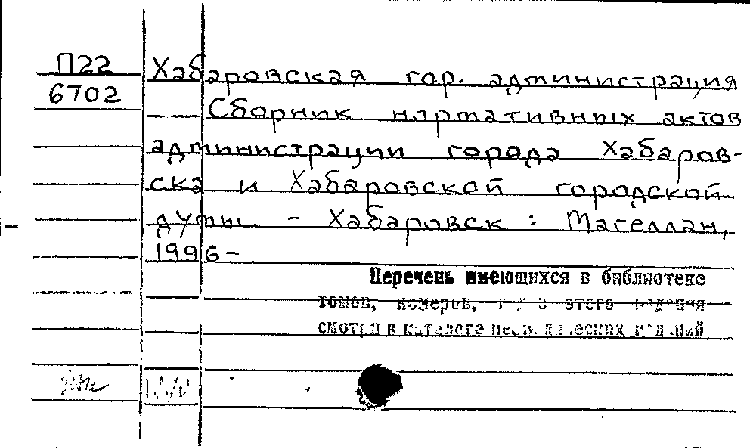 П22 Хабаровская гор. администрация
6702 Сборник нормативных актов
администрации города Хабаров-
ска и Хабаровской городской
думы. - Хабаровск : Магеллан,
1996-
Перечень имеющихся в библиотеке
томов, номеров, этого издания
смотри в каталоге периодических изданий